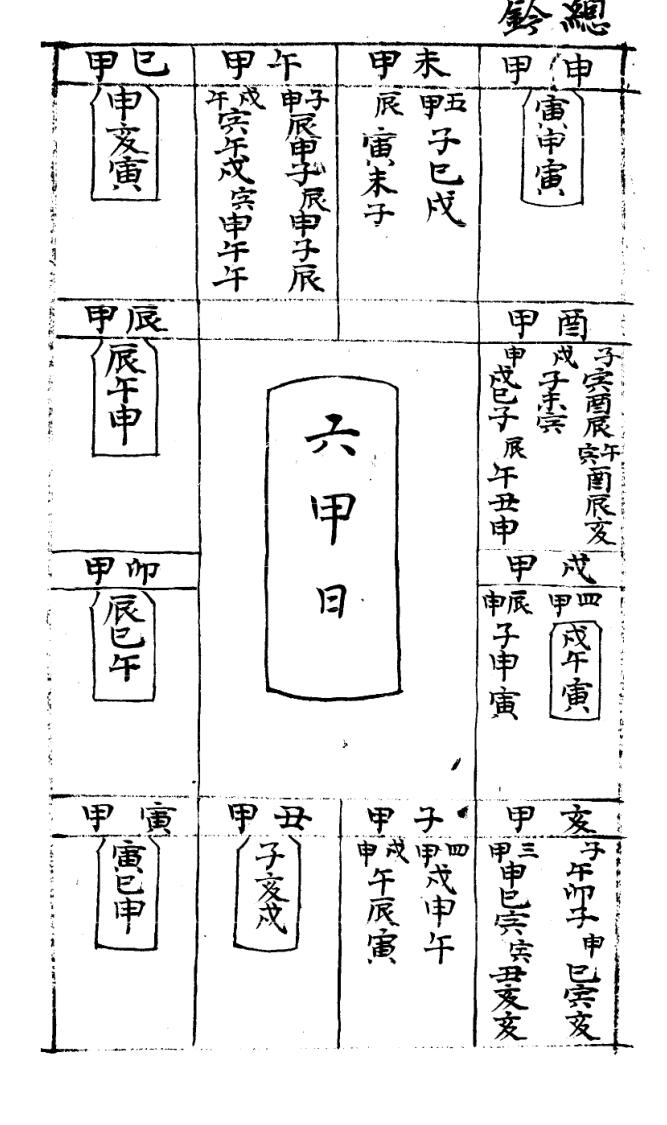 總鈐
申甲
寅申寅
未甲
五甲子巳戌
辰寅未子
午甲
子申辰申子辰申子辰
戌午寅午戌寅申午午
巳甲
申亥寅
酉甲
子寅酉辰午寅酉辰亥
戌子未寅
申戌巳子辰午丑申
辰甲
辰午申
六甲日
戌甲
四甲戌午寅
辰申子申寅
卯甲
辰巳午
亥甲
子午卯子申巳寅亥
三甲申巳寅寅丑亥亥
子甲
四甲戌申午
戌申午辰寅
丑甲
子亥戌
寅甲
寅巳申